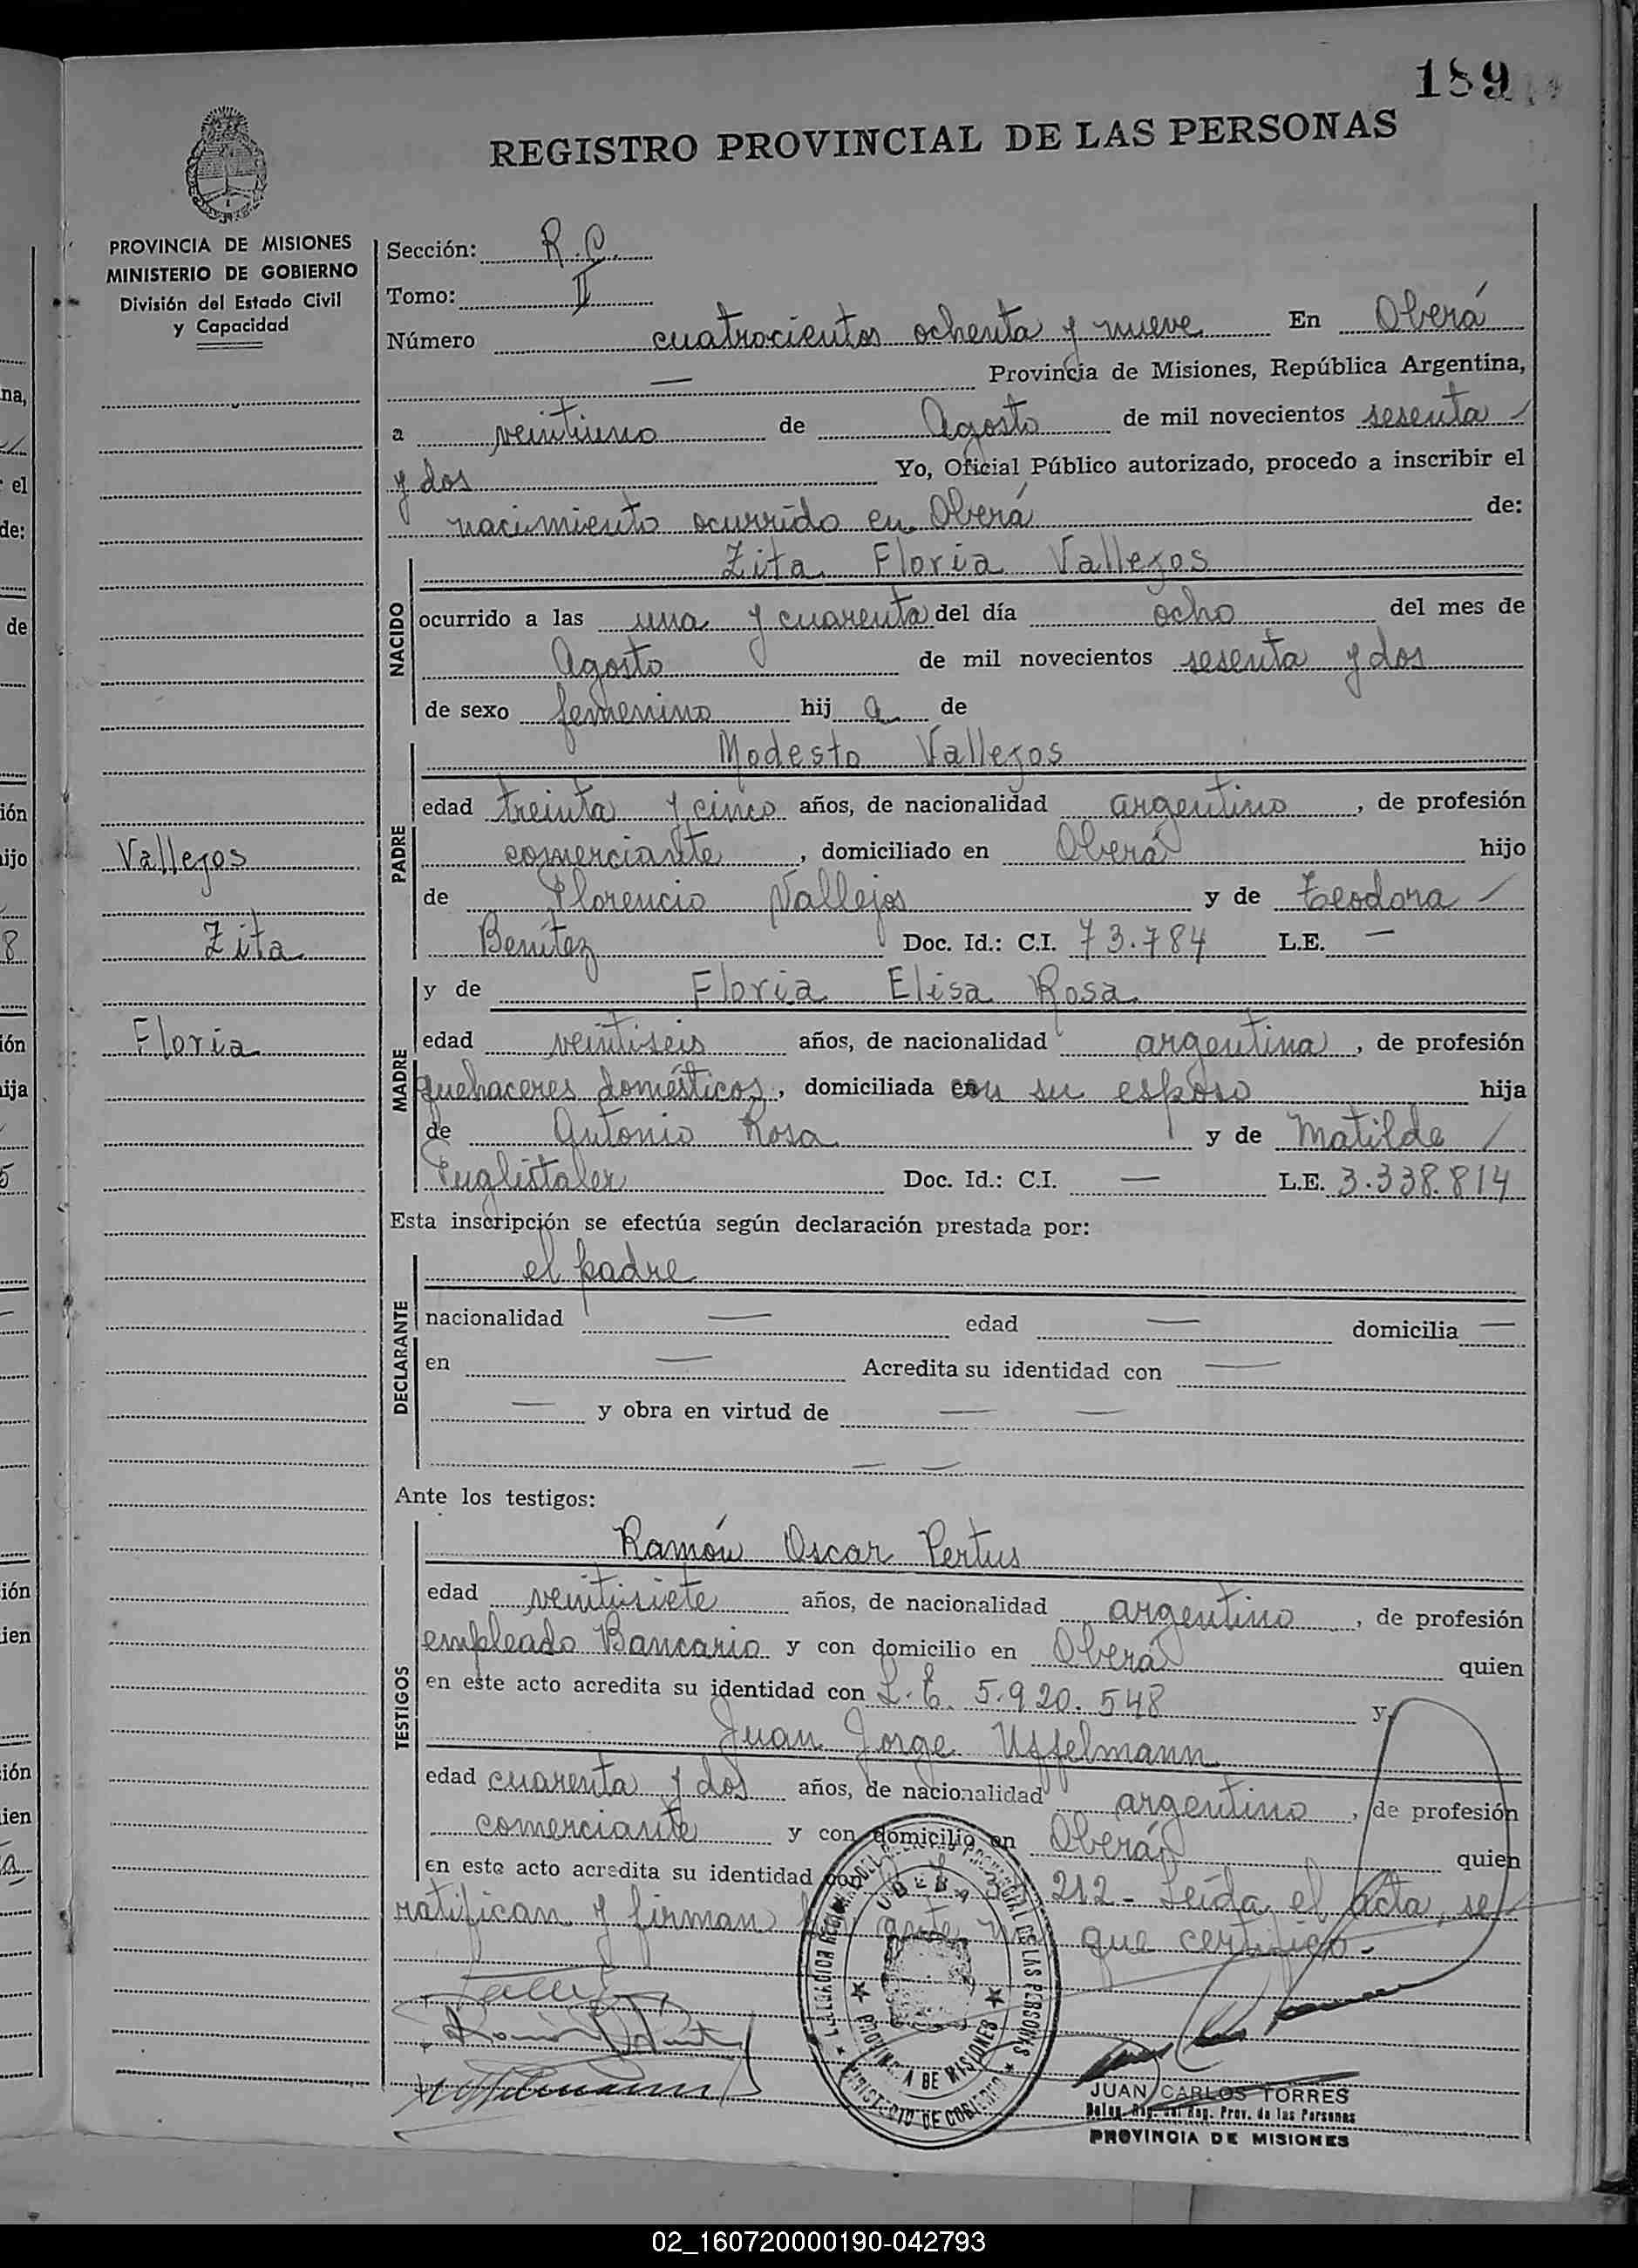 189
REGISTRO PROVINCIAL DE LAS PERSONAS
PROVINCIA DE MISIONES
MINISTERIO DE GOBIERNO
División del Estado Civil
y Capacidad
Sección: R.C.
Tomo: II
Número cuatrocientos ochenta y nueve En Oberá
— Provincia de Misiones, República Argentina,
a veintiuno de Agosto de mil novecientos sesenta
y dos Yo, Oficial Público autorizado, procedo a inscribir el
nacimiento ocurrido en Oberá de:
NACIDO
Zita Floria Vallejos
ocurrido a las una y cuarenta del día ocho del mes de
Agosto de mil novecientos sesenta y dos
de sexo femenino hij a de
PADRE
Modesto Vallejos
edad treinta y cinco años, de nacionalidad argentino, de profesión
comerciante, domiciliado en Oberá hijo
de Florencio Vallejos y de Teodora
Benítez Doc. Id.: C.I. 73.784 L.E. —
Vallejos
Zita
Floria
MADRE
y de Floria Elisa Rosa
edad veintiseis años, de nacionalidad argentina, de profesión
quehaceres domésticos, domiciliada con su esposo hija
de Antonio Rosa y de Matilde
Doc. Id.: C.I. — L.E. 3.338.814
Esta inscripción se efectúa según declaración prestada por:
DECLARANTE
el padre
nacionalidad — edad — domicilia —
en — Acredita su identidad con —
— y obra en virtud de — —
— —
Ante los testigos:
TESTIGOS
Ramón Oscar Pertus
edad veintisiete años, de nacionalidad argentino, de profesión
empleado Bancario y con domicilio en Oberá quien
en este acto acredita su identidad con L.E. 5.920.548 y
Juan Jorge Uffelmann
edad cuarenta y dos años, de nacionalidad argentino, de profesión
comerciante y con domicilio en Oberá quien
en este acto acredita su identidad con 212 - Leída el acta, se
ratifican y firman ante que certifico.-
OBERA
PROVINCIA DE MISIONES
MINISTERIO DE GOBIERNO
JUAN CARLOS TORRES
Deleg. Reg. del Reg. Prov. de las Personas
PROVINCIA DE MISIONES
02_160720000190-042793